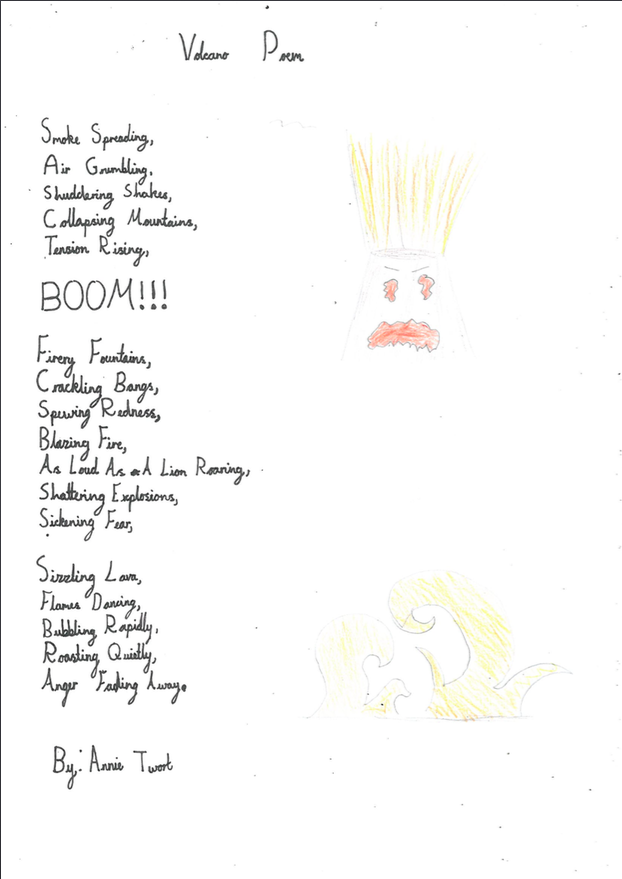 Volcano Poem
Smoke Spreading,
Air Grumbling,
Shuddering Shakes,
Collapsing Mountains,
Tension Rising,
BOOM!!!
Firery Fountains,
Crackling Bangs,
Spewing Redness,
Blazing Fire,
As Loud As A Lion Roaring,
Shattering Explosions,
Sickening Fear,
Sizzling Lava,
Flames Dancing,
Bubbling Rapidly,
Roasting Quietly,
Anger Fading Away.
By: Annie Twort